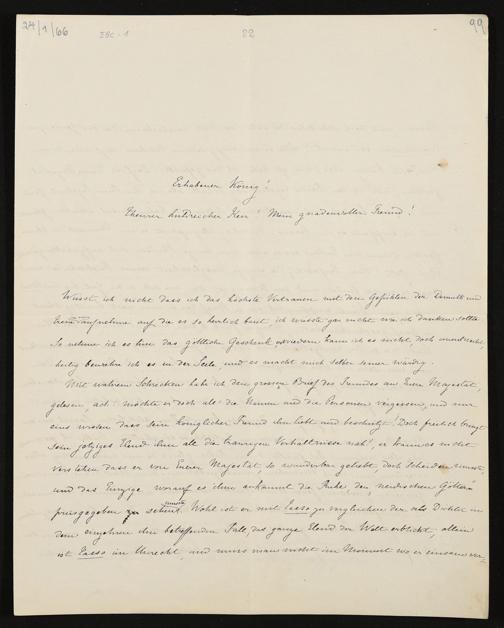 24/1/66
22
99
Erhabener König!
Theurer hülfreicher Herr! Mein gnadenvoller Freund!
Wüsst ich nicht dass ich das höchste Vertrauen mit den Gefühlen der Demuth und
Treue aufnehme auf die es so herrlich baut, ich wüsste gar nicht wie ich danken sollte
So nehme ich es hin das göttliche Geschenk, erwiedern kann ich es nicht doch
heilig bewahre ich es in der Seele, und es macht mich selber seiner würdig.
Mit wahrem Schrecken habe ich den grossen Brief des Freundes an Eure Majestät,
gelesen, ach! möchte er doch alle die Namen und die Personen vergessen, und nur
eins wissen dass sein königlicher Freund ihn liebt und beschützt! Doch freilich bringt
sein jetziges Elend ihm all die traurigen Verhältnisse nah, er kann es nicht
verstehen dass er von Eurer Majestät, so wunderbar geliebt, doch scheiden musste,
und das Einzige worauf es ihm ankommt die Ruhe, den neidischen Göttern
preisgegeben zu sein musste. Wohl ist er mit Tasso zu vergleichen der als Dichter in
dem einzelnen ihn betreffenden Fall, das ganze Elend der Welt erblickt, allein
ist Tasso im Unrecht, und muss man nicht im Moment wo er einsam ver-